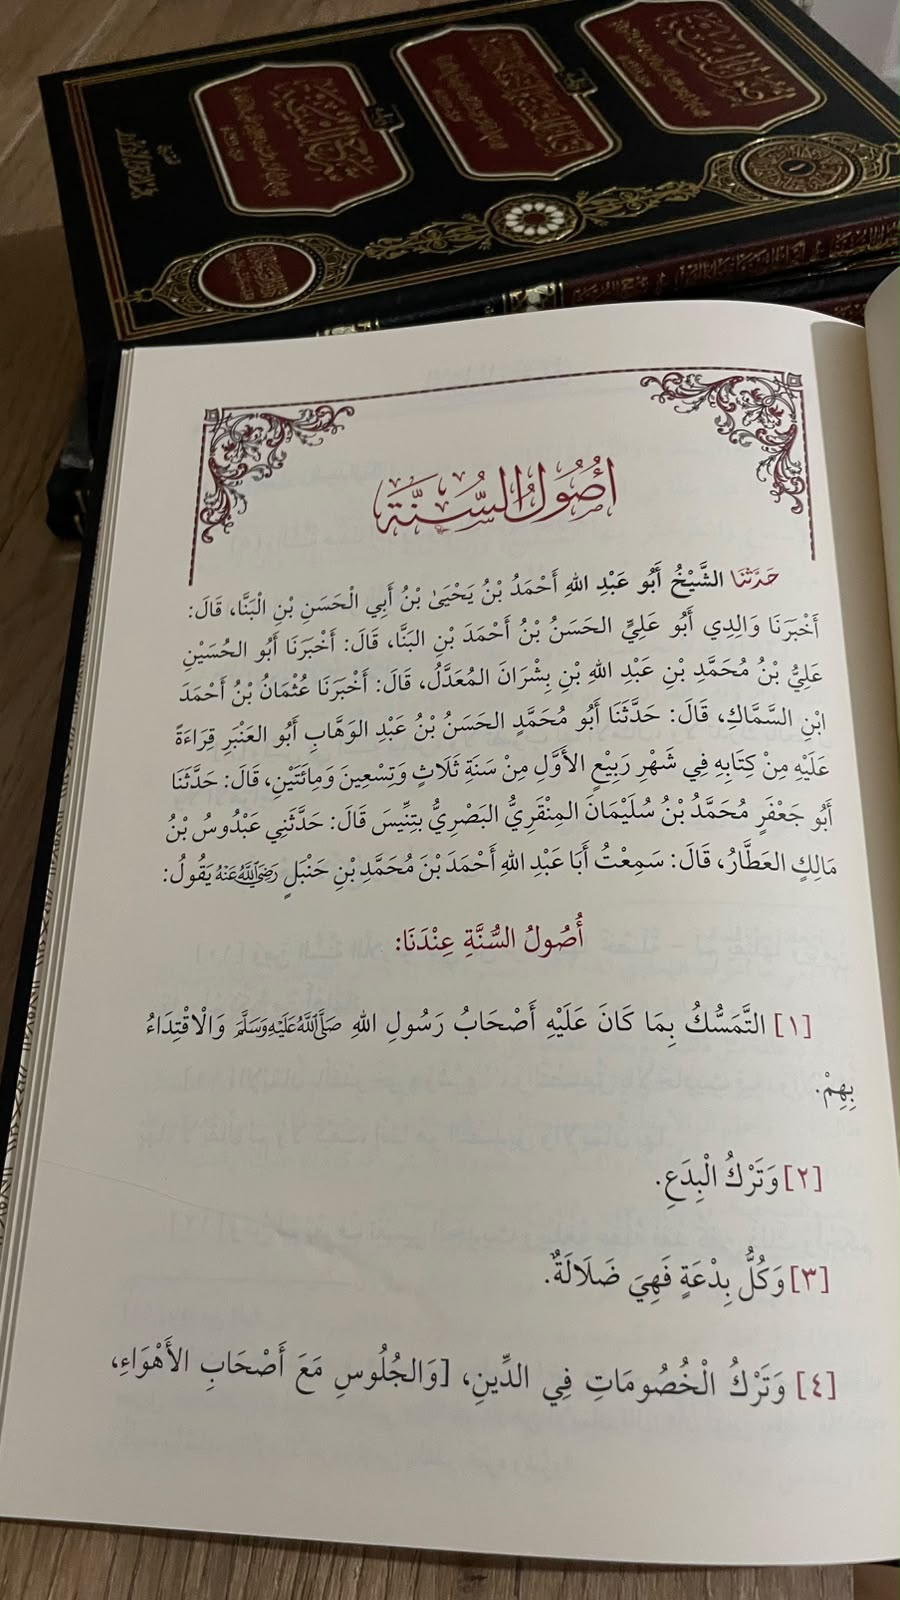 أُصُولُ السُّنَّة
حَدَّثَنَا الشَّيْخُ أَبُو عَبْدِ اللهِ أَحْمَدُ بْنُ يَحْيَىٰ بْنُ أَبِي الْحَسَنِ بْنِ الْبَنَّا، قَالَ:
أَخْبَرَنَا وَالِدِي أَبُو عَلِيٍّ الحَسَنُ بْنُ أَحْمَدَ بْنِ البَنَّا، قَالَ: أَخْبَرَنَا أَبُو الحُسَيْنِ
عَلِيُّ بْنُ مُحَمَّدِ بْنِ عَبْدِ اللهِ بْنِ بِشْرَانَ المُعَدَّلُ، قَالَ: أَخْبَرَنَا عُثْمَانُ بْنُ أَحْمَدَ
ابْنِ السَّمَّاكِ، قَالَ: حَدَّثَنَا أَبُو مُحَمَّدٍ الحَسَنُ بْنُ عَبْدِ الوَهَّابِ أَبُو العَنْبَرِ قِرَاءَةً
عَلَيْهِ مِنْ كِتَابِهِ فِي شَهْرِ رَبِيْعٍ الأَوَّلِ مِنْ سَنَةِ ثَلَاثٍ وَتِسْعِينَ وَمِائَتَيْنِ، قَالَ: حَدَّثَنَا
أَبُو جَعْفَرٍ مُحَمَّدُ بْنُ سُلَيْمَانَ المِنْقَرِيُّ البَصْرِيُّ بِتِنِّيسَ قَالَ: حَدَّثَنِي عَبْدُوسُ بْنُ
مَالِكٍ العَطَّارُ، قَالَ: سَمِعْتُ أَبَا عَبْدِ اللهِ أَحْمَدَ بْنَ مُحَمَّدِ بْنِ حَنْبَلٍ رَضِيَ اللَّهُ عَنْهُ يَقُولُ:
أُصُولُ السُّنَّةِ عِنْدَنَا:
[١] التَّمَسُّكُ بِمَا كَانَ عَلَيْهِ أَصْحَابُ رَسُولِ اللهِ صَلَّى اللَّهُ عَلَيْهِ وَسَلَّمَ وَالْاقْتِدَاءُ
بِهِمْ.
[٢] وَتَرْكُ الْبِدَعِ.
[٣] وَكُلُّ بِدْعَةٍ فَهِيَ ضَلَالَةٌ.
[٤] وَتَرْكُ الْخُصُومَاتِ فِي الدِّينِ، [وَالجُلُوسِ مَعَ أَصْحَابِ الأَهْوَاءِ،